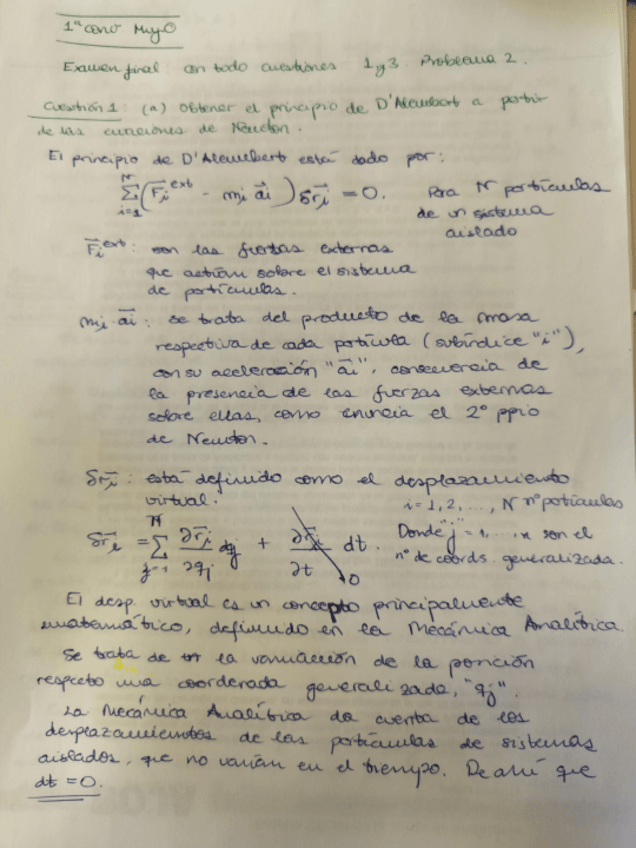 1ª conv MyO
Examen final con todo cuestiones 1 y 3. Problema 2.
Cuestión 1: (a) Obtener el principio de D'Alembert a partir
de las ecuaciones de Newton.
El principio de D'Alembert está dado por:
N Σ i=1 (F⃗i^ext - mi a⃗i) δr⃗i = 0. Para N partículas
de un sistema
aislado
F⃗i^ext: son las fuerzas externas
que actúan sobre el sistema
de partículas.
mi·a⃗i: se trata del producto de la masa
respectiva de cada partícula (subíndice "i"),
con su aceleración "a⃗i", consecuencia de
la presencia de las fuerzas externas
sobre ellas, como enuncia el 2º ppio
de Newton.
δr⃗i: está definido como el desplazamiento
virtual. i = 1, 2, ..., N nº partículas
δr⃗i = Σ j=1 ∂r⃗i/∂qj dqj + ∂r⃗i/∂t dt. Donde "j" = 1, ..., n son el
0 nº de coords. generalizada.
El desp. virtual es un concepto principalmente
matemático, definido en la Mecánica Analítica.
Se trata de la variación de la posición
respecto una coordenada generalizada, "qj".
La Mecánica Analítica da cuenta de los
desplazamientos de las partículas de sistemas
aislados, que no varían en el tiempo. De ahí que
dt = 0.